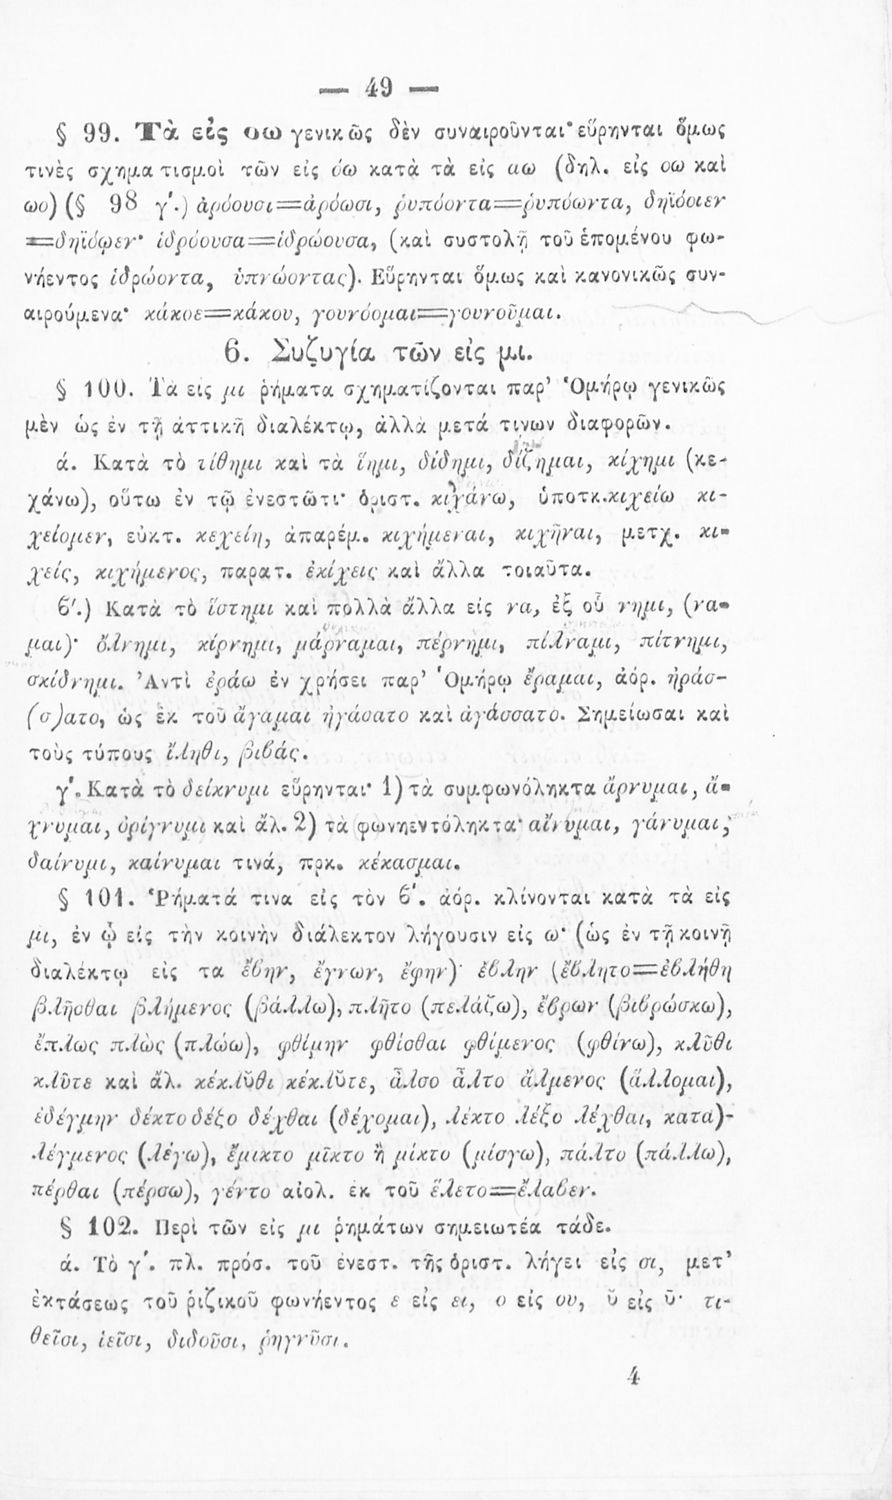 — 49 —
§ 99. Τὰ εἰς οω γενικῶς δὲν συναιροῦνται· εὕρηνται ὅμως
τινὲς σχηματισμοὶ τῶν εἰς όω κατὰ τὰ εἰς αω (δηλ. εἰς οω καὶ
ωο) (§ 98 γ΄.) ἀρόουσι=ἀρόωσι, ῥυπόοντα=ῥυπόωντα, δηϊόοιεν
=δηϊόῳεν· ἱδρόουσα=ἱδρώουσα, (καὶ συστολῇ τοῦ ἑπομένου φω-
νήεντος ἱδρώοντα, ὑπνώοντας). Εὕρηνται ὅμως καὶ κανονικῶς συν-
αιρούμενα· κάκοε=κάκου, γουνόομαι=γουνοῦμαι.
6. Συζυγία τῶν εἰς μι.
§ 100. Τὰ εἰς μι ῥήματα σχηματίζονται παρ' Ὁμήρῳ γενικῶς
μὲν ὡς ἐν τῇ ἀττικῇ διαλέκτῳ, ἀλλὰ μετά τινων διαφορῶν.
ά. Κατὰ τὸ τίθημι καὶ τὰ ἵημι, δίδημι, δίζημαι, κίχημι (κε-
χάνω), οὕτω ἐν τῷ ἐνεστῶτι· ὁριστ. κιχάνω, ὑποτκ. κιχείω κι-
χείομεν, εὐκτ. κεχείη, ἀπαρέμ. κιχήμεναι, κιχῆναι, μετχ. κι-
χείς, κιχήμενος, παρατ. ἐκίχεις καὶ ἄλλα τοιαῦτα.
β΄.) Κατὰ τὸ ἵστημι καὶ πολλὰ ἄλλα εἰς να, ἐξ οὗ νημι, (να-
μαι)· ὄλνημι, κίρνημι, μάρναμαι, πέρνημι, πίλναμι, πίτνημι,
σκίδνημι. Ἀντὶ ἐράω ἐν χρήσει παρ' Ὁμήρῳ ἔραμαι, ἀόρ. ἠράσ-
(σ)ατο, ὡς ἐκ τοῦ ἄγαμαι ἠγάσατο καὶ ἀγάσσατο. Σημείωσαι καὶ
τοὺς τύπους ἵληθι, βιβάς.
γ΄. Κατὰ τὸ δείκνυμι εὕρηνται· 1) τὰ συμφωνόληκτα ἄρνυμαι, ἄ-
χνυμαι, ὀρίγνυμι καὶ ἄλ. 2) τὰ φωνηεντόληκτα· αἴνυμαι, γάνυμαι,
δαίνυμι, καίνυμαι τινά, πρκ. κέκασμαι.
§ 101. Ῥήματά τινα εἰς τὸν β΄. ἀόρ. κλίνονται κατὰ τὰ εἰς
μι, ἐν ᾧ εἰς τὴν κοινὴν διάλεκτον λήγουσιν εἰς ω· (ὡς ἐν τῇ κοινῇ
διαλέκτῳ εἰς τα ἔβην, ἔγνων, ἔφην)· ἔβλην (ἔβλητο=ἐβλήθη
βλῆσθαι βλήμενος (βάλλω), πλῆτο (πελάζω), ἔβρων (βιβρώσκω),
ἔπλως πλὼς (πλώω), φθίμην φθίσθαι φθίμενος (φθίνω), κλῦθι
κλῦτε καὶ ἄλ. κέκλυθι κέκλυτε, ἆλσο ἆλτο ἄλμενος (ἅλλομαι),
ἐδέγμην δέκτο δέξο δέχθαι (δέχομαι), λέκτο λέξο λέχθαι, κατα)-
λέγμενος (λέγω), ἔμικτο μῖκτο ἢ μίκτο (μίσγω), πάλτο (πάλλω),
πέρθαι (πέρσω), γέντο αἰολ. ἐκ τοῦ ἕλετο=ἔλαβεν.
§ 102. Περὶ τῶν εἰς μι ῥημάτων σημειωτέα τάδε.
ά. Τὸ γ΄. πλ. πρόσ. τοῦ ἐνεστ. τῆς ὁριστ. λήγει εἰς σι, μετ'
ἐκτάσεως τοῦ ῥιζικοῦ φωνήεντος ε εἰς ει, ο εἰς ου, ῠ εἰς ῡ· τι-
θεῖσι, ἱεῖσι, διδοῦσι, ῥηγνῦσι.
4